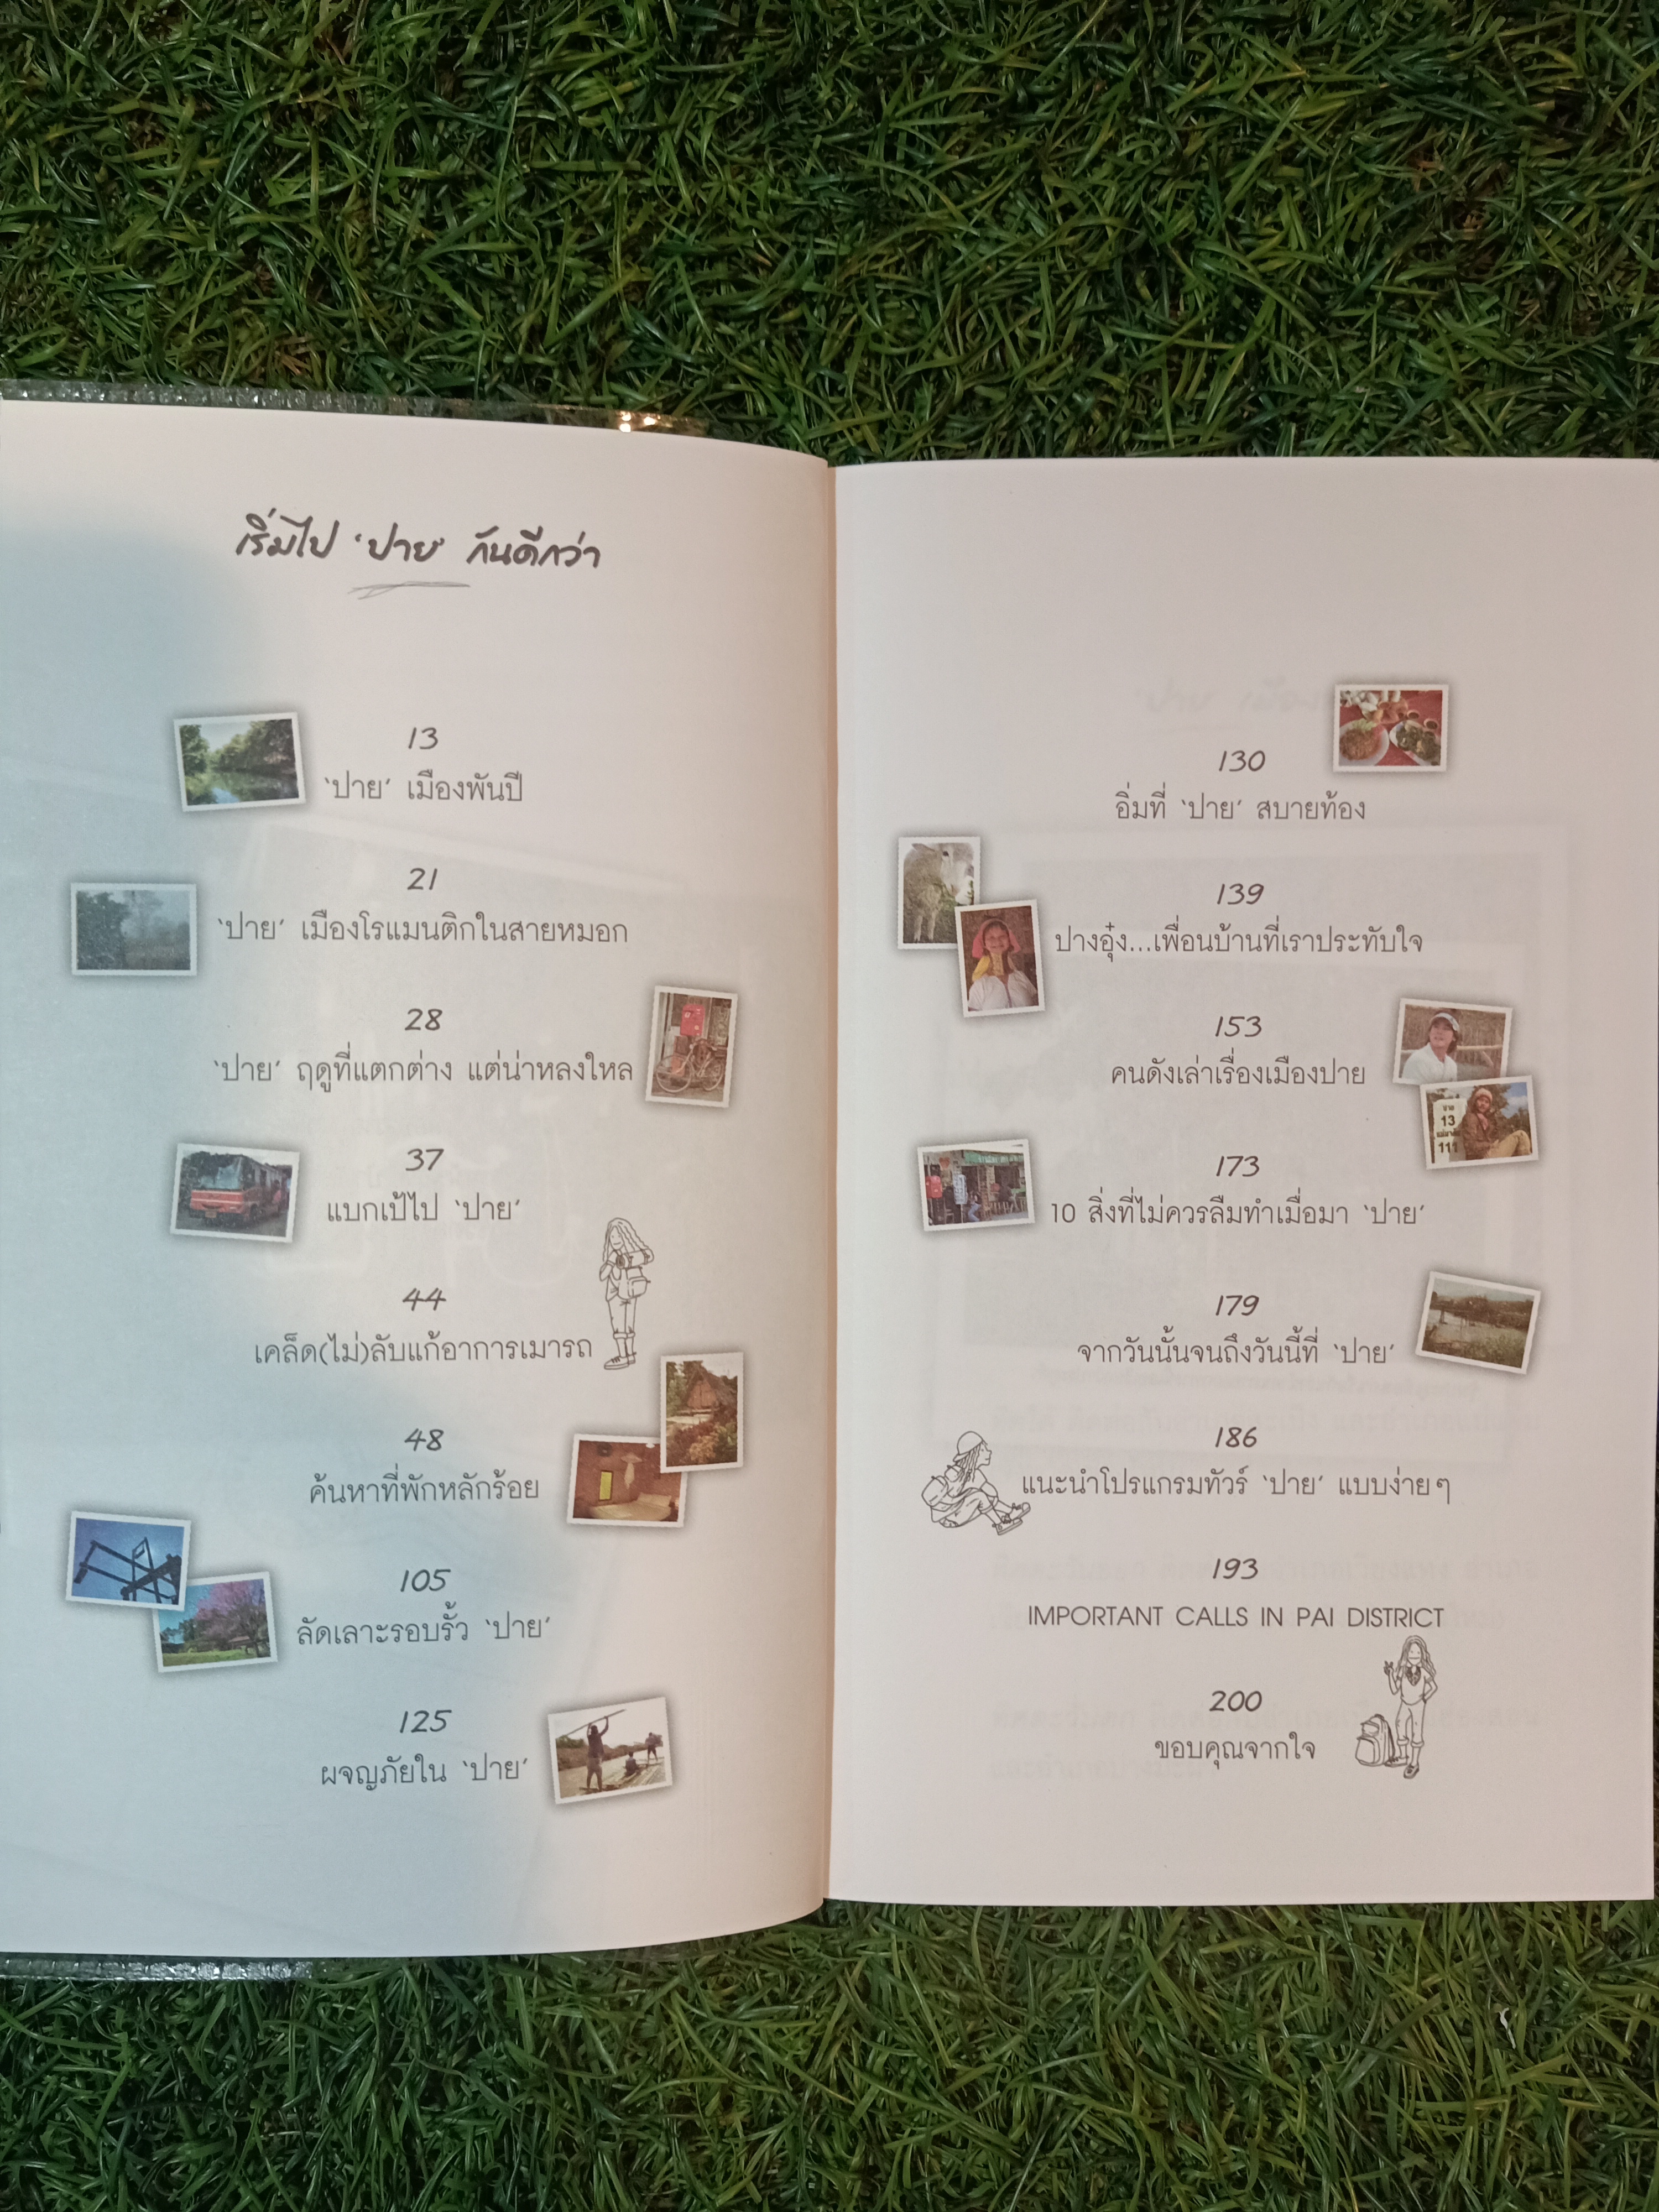 เริ่มไป 'ปาย' กันดีกว่า
13
'ปาย' เมืองพันปี
21
'ปาย' เมืองโรแมนติกในสายหมอก
28
'ปาย' ฤดูที่แตกต่าง แต่น่าหลงใหล
37
แบกเป้ไป 'ปาย'
44
เคล็ด(ไม่)ลับแก้อาการเมารถ
48
ค้นหาที่พักหลักร้อย
105
ลัดเลาะรอบรั้ว 'ปาย'
125
ผจญภัยใน 'ปาย'
130
อิ่มที่ 'ปาย' สบายท้อง
139
ปางอุ๋ง...เพื่อนบ้านที่เราประทับใจ
153
คนดังเล่าเรื่องเมืองปาย
13
111
173
10 สิ่งที่ไม่ควรลืมทำเมื่อมา 'ปาย'
179
จากวันนั้นจนถึงวันนี้ที่ 'ปาย'
186
แนะนำโปรแกรมทัวร์ 'ปาย' แบบง่ายๆ
193
IMPORTANT CALLS IN PAI DISTRICT
200
ขอบคุณจากใจ